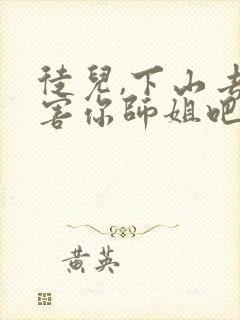 徒兒,下山去
害你師姐吧
黃英